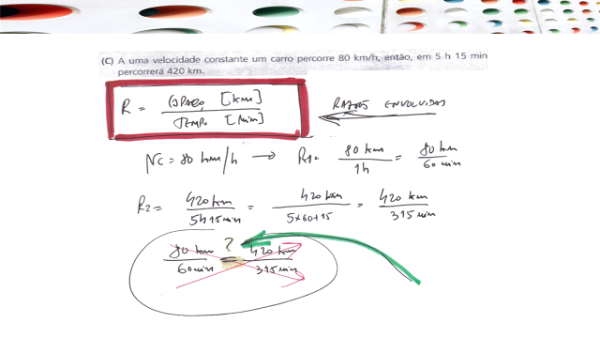 (C) A uma velocidade constante um carro percorre 80 km/h, então, em 5 h 15 min
percorrerá 420 km.
R = ESPAÇO [km] / TEMPO [min]
RAZÕES ENVOLVIDAS
Vc = 80 km/h → R1 = 80 km / 1h = 80 km / 60 min
R2 = 420 km / 5h15min = 420 km / 5x60+15 = 420 km / 315 min
80 km / 60 min =? 420 km / 315 min